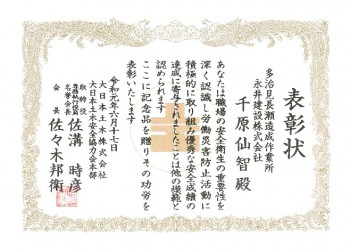 表彰状
多治見長瀬造成作業所
永井建設株式会社
千原仙智殿
あなたは職場の安全衛生の重要性を
深く認識し労働災害防止活動に
積極的に取り組み優秀な安全成績の
達成に寄与されましたことは他の模範と
認められます
ここに記念品を贈りその功労を
表彰いたします
令和元年六月十七日
大日本土木株式会社
大日本土木安全協力会本部
取締役
専務執行役員
名誉会長
佐溝時彦
会長
佐々木邦衛